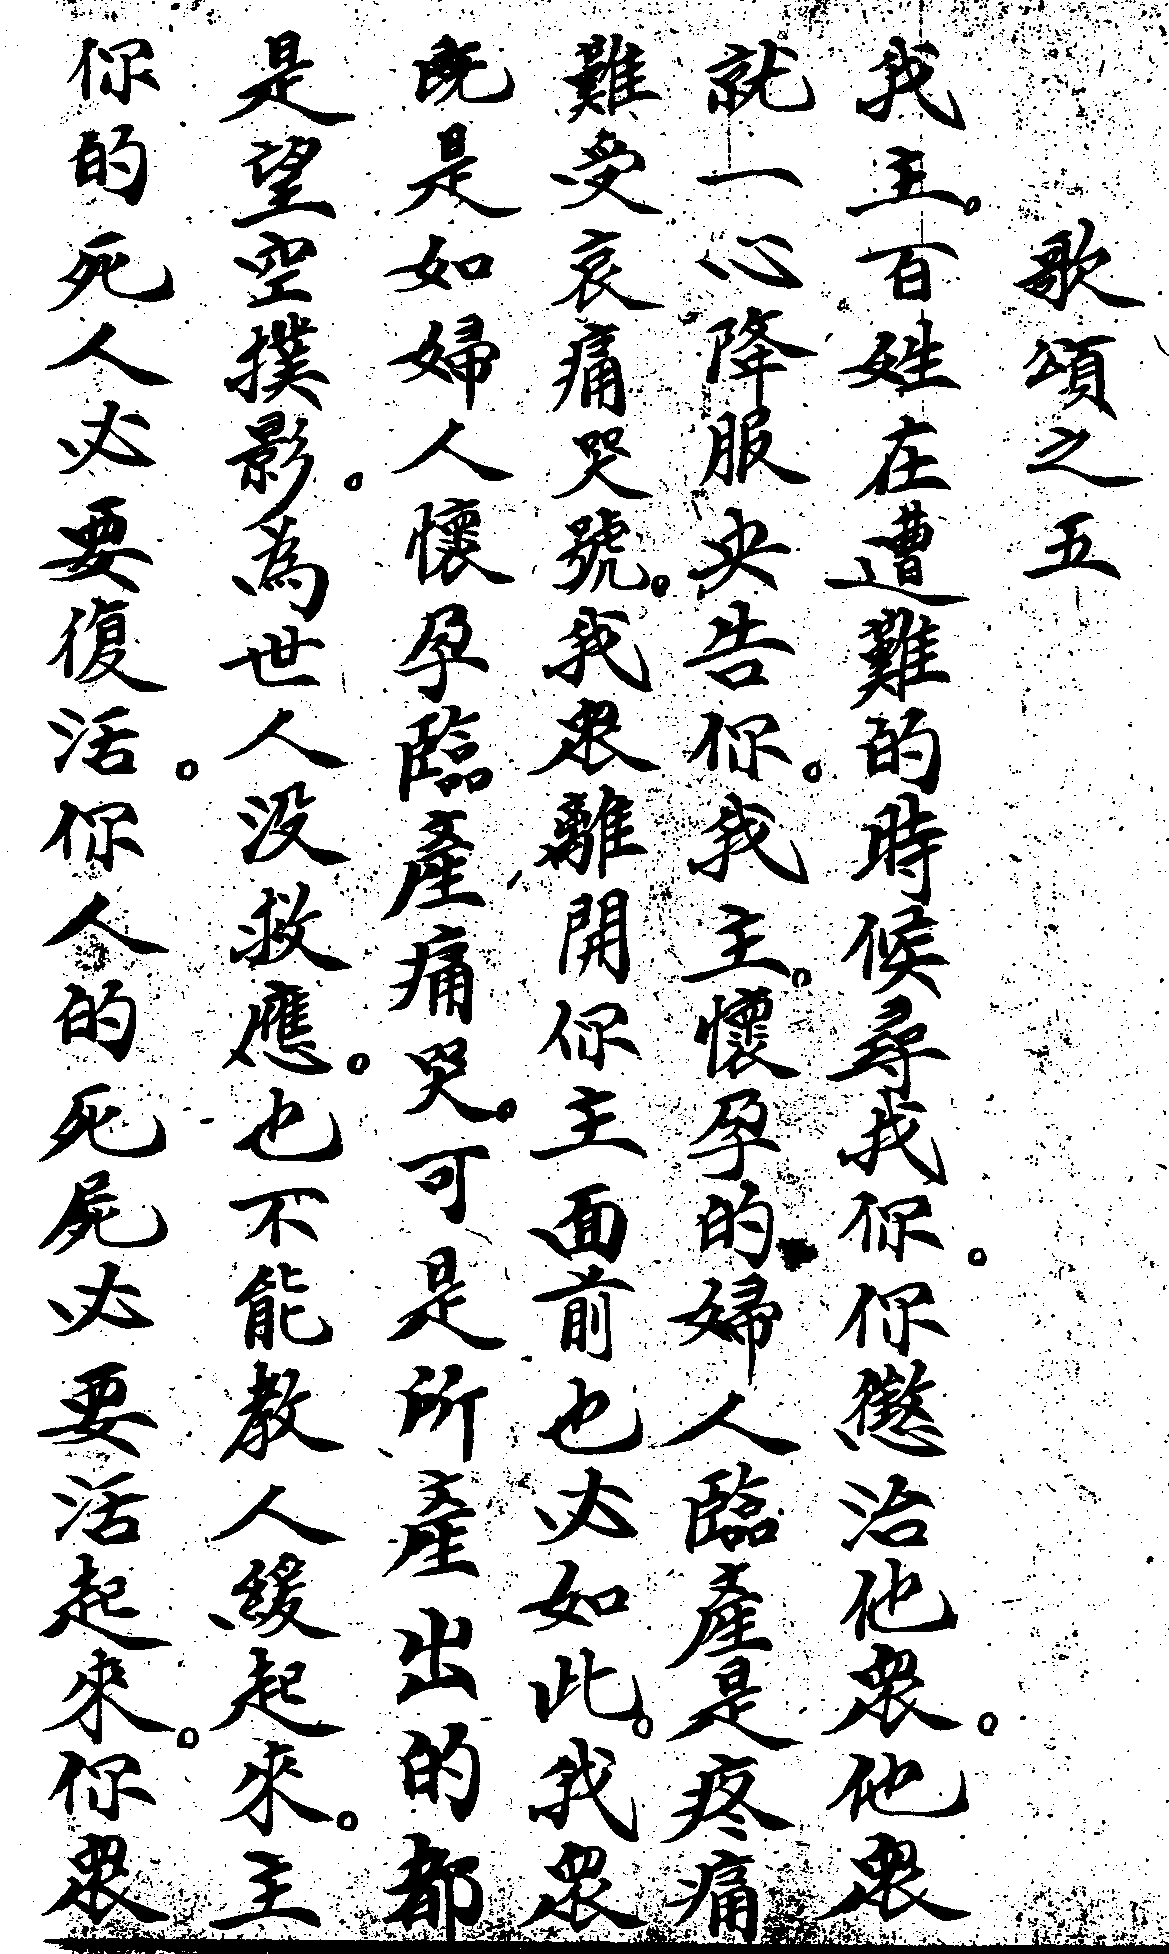 歌頌之五
我主。百姓在遭難的時候尋我你。你懲治他衆。他衆
就一心降服央告你。我主。懷孕的婦人臨產是疼痛
難受哀痛哭號。我衆離開你主面前也必如此。我衆
既是如婦人懷孕臨產痛哭。可是所產出的都
是望空撲影。為世人没救應。也不能教人緩起來。主
你的死人必要復活。你人的死屍必要活起來。你衆